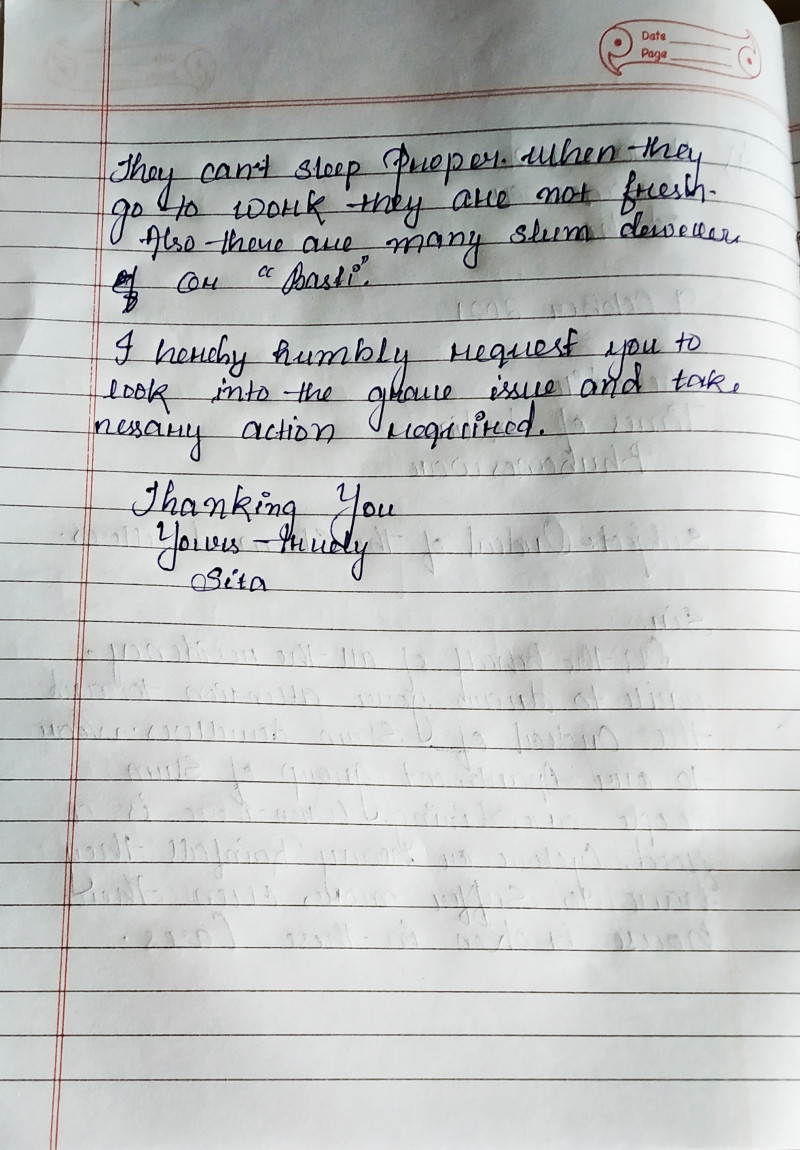 Date
Page
They can't sleep proper. when they
go to work they are not fresh.
Also there are many slum dewellers
or "Basti".
I hereby humbly request you to
look into the grave issue and take
nessary action required.
Thanking You
Yours truely
Sita